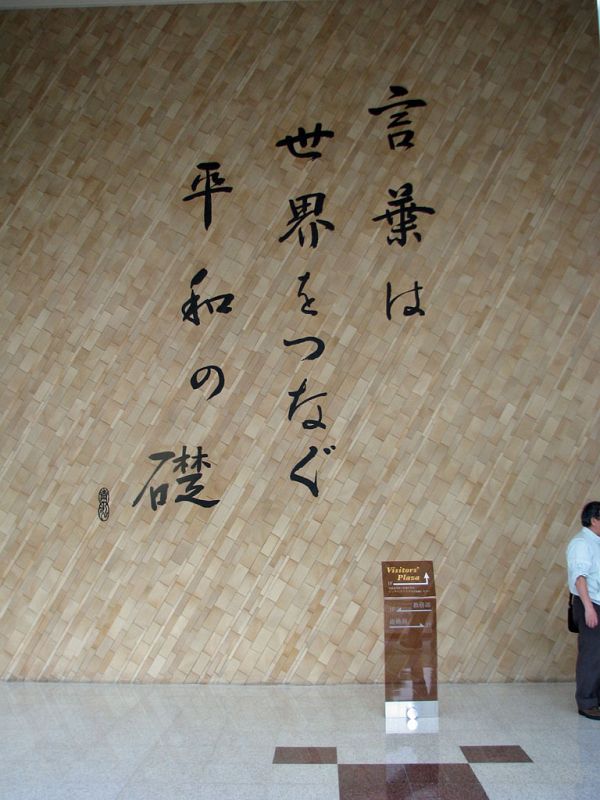 言葉は
世界をつなぐ
平和の礎
Visitors'
Plaza